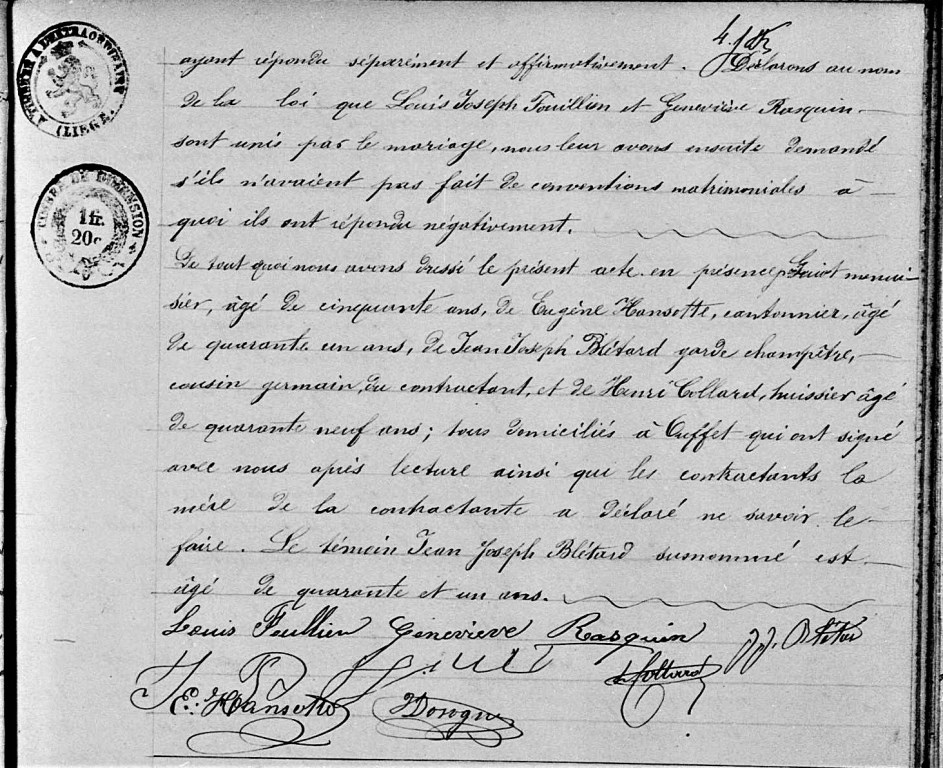 TIMBRÉ A L'EXTRAORDINAIRE
(LIÉGE.)
TIMBRE DE DIMENSION
1 fr.
20c
ayant répondu séparément et affirmativement. Déclarons au nom
de la loi que Louis Joseph Feuillien et Geneviève Rasquin
sont unis par le mariage, nous leur avons ensuite demandé
s'ils n'avaient pas fait de conventions matrimoniales à
quoi ils ont répondu négativement.
De tout quoi nous avons dressé le présent acte en présence menui-
sier, âgé de cinquante ans, de Eugène Hansotte, cantonnier, âgé
de quarante un ans, de Jean Joseph Blétard garde champêtre,
cousin germain du contractant, et de Henri Collard, huissier âgé
de quarante neuf ans; tous domiciliés à Ouffet qui ont signé
avec nous après lecture ainsi que les contractants la
mère de la contractante a déclaré ne savoir le
faire. Le témoin Jean Joseph Blétard susnommé est
âgé de quarante et un ans.
Louis Feullien Geneviève Rasquin J.J. Blétard
h Collard
E: Hansotte